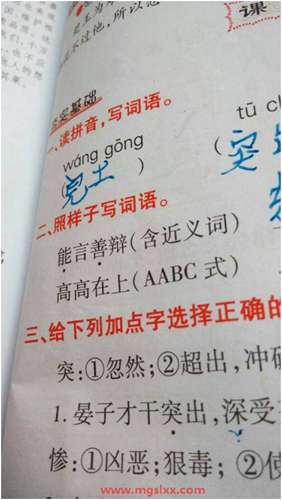 课
夯实基础
一、读拼音,写词语。
wáng gōng
tū ch
( )
(突
二、照样子写词语。
能言善辩(含近义词)
高高在上(AABC 式)
三、给下列加点字选择正确的
突:①忽然;②超出,冲
1.晏子才干突出,深受
惨:①凶恶;狠毒;②使
www.mgslxx.com